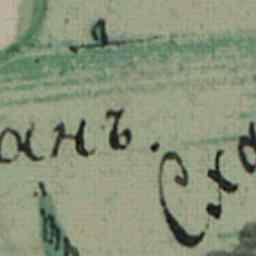 анъ.
Сха